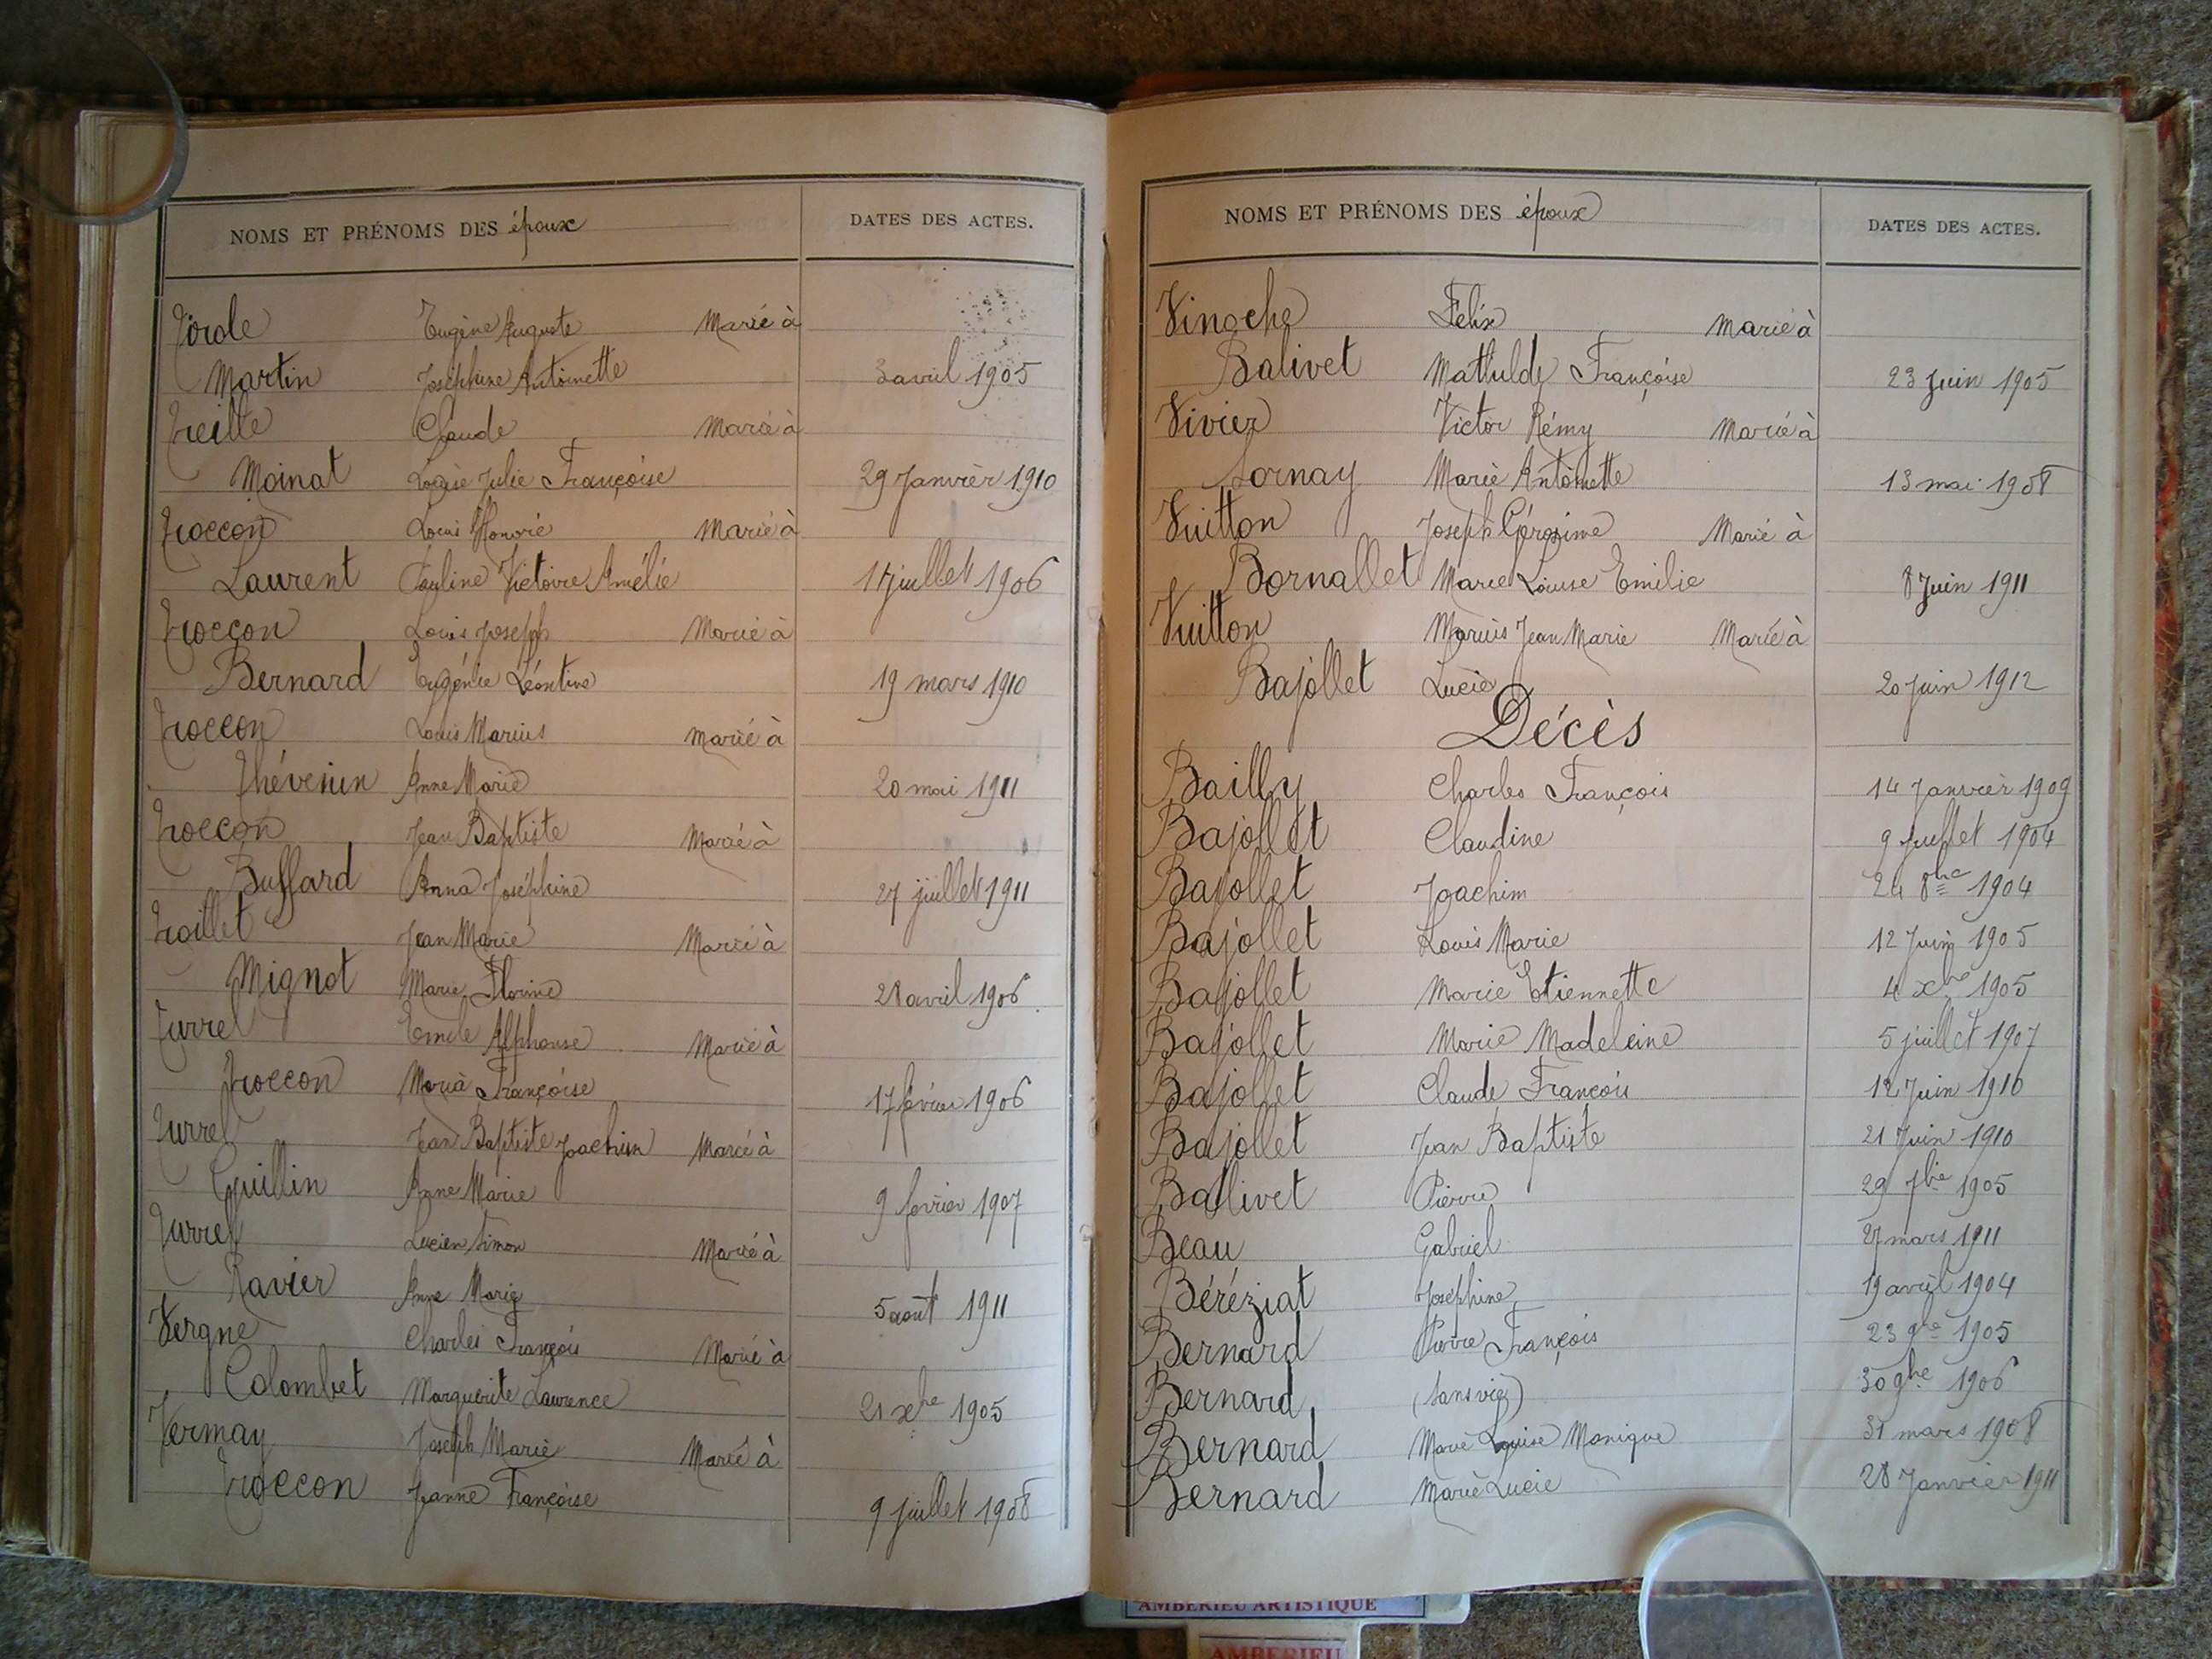 NOMS ET PRÉNOMS DES époux DATES DES ACTES.
Tirole Eugène Auguste Marié à
Martin Joséphine Antoinette 3 avril 1905
Treille Claude Marié à
Moinat Louise Julie Françoise 29 Janvier 1910
Troccon Louis Honoré Marié à
Laurent Pauline Victoire Amélie juillet 1906
Troccon Louis Joseph Marié à
Bernard Eugénie Léontine 19 mars 1910
Troccon Louis Marius Marié à
Thévenin Anne Marie 20 mai 1911
Troccon Jean Baptiste Marié à
Buffard Anna Joséphine 27 juillet 1911
Troillet Jean Marie Marié à
Mignot Marie Florine 28 avril 1906
Turrel Emile Alphonse Marié à
Troccon Maria Françoise 17 février 1906
Turrel Jean Baptiste Joachim Marié à
Guillin Anne Marie 9 février 1907
Turrel Lucien Simon Marié à
Ravier Anne Marie 5 août 1911
Vergne Charles François Marié à
Colombet Marguerite Laurence 21 xbre 1905
Vermay Joseph Marie Marié à
Troccon Jeanne Françoise 9 juillet 1908
NOMS ET PRÉNOMS DES époux DATES DES ACTES.
Vinoche Felix Marié à
Balivet Mathilde Françoise 23 Juin 1905
Vivier Victor Rémy Marié à
Sornay Marie Antoinette 13 mai 1908
Vuitton Joseph Marié à
Bornallet Marie Louise Emilie 8 Juin 1911
Vuitton Marius Jean Marie Marié à
Bajollet Lucie 20 Juin 1912
Décès
Bailly Charles François 14 Janvier 1909
Bajollet Claudine 9 Juillet 1904
Bajollet Joachim 24 8bre 1904
Bajollet Louis Marie 12 Juin 1905
Bajollet Marie Etiennette 4 xbre 1905
Bajollet Marie Madeleine 5 juillet 1907
Bajollet Claude François 12 Juin 1910
Bajollet Jean Baptiste 21 Juin 1910
Ballivet Pierre 29 7bre 1905
Beau Gabriel 27 mars 1911
Béréziat Joséphine 19 avril 1904
Bernard Pierre François 23 9bre 1905
Bernard (sans vie) 30 9bre 1906
Bernard Marie Louise Monique 31 mars 1908
Bernard Marie Lucie 28 Janvier 1911
AMBERIEU ARTISTIQUE
AMBERIEU